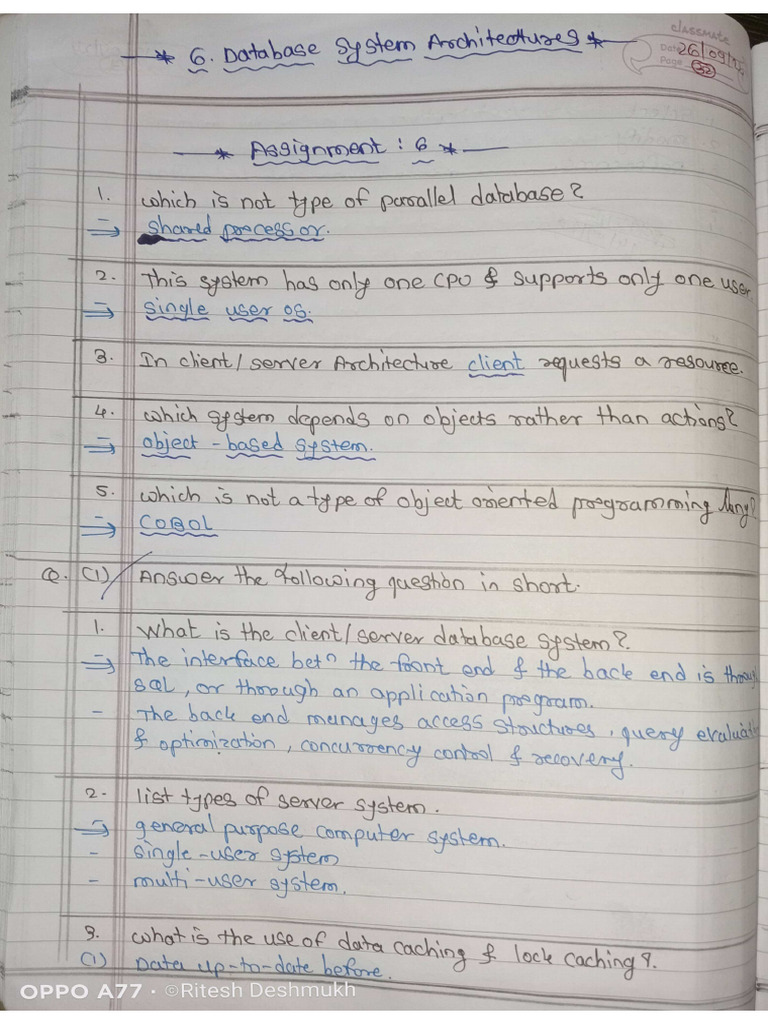 * 6. Database System Architectures *
classmate
Date 26/09/
Page 32
* Assignment : 6 *
1. which is not type of parallel database?
⇒ shared processor.
2. This system has only one CPU & supports only one user.
⇒ single user os.
3. In client/server Architecture client requests a resource.
4. which system depends on objects rather than actions?
⇒ object - based system.
5. which is not a type of object oriented programming lang?
⇒ COBOL
Q. (1) Answer the following question in short.
1. What is the client/server database system?
⇒ The interface betn the front end & the back end is through
SQL, or through an application program.
- The back end manages access structures, query evaluati
& optimization, concurrency control & recovery.
2. list types of server system.
⇒ general purpose computer system.
- single-user system
- multi-user system.
3. what is the use of data caching & lock caching?
(1) Data up-to-date before.
OPPO A77 · ©Ritesh Deshmukh